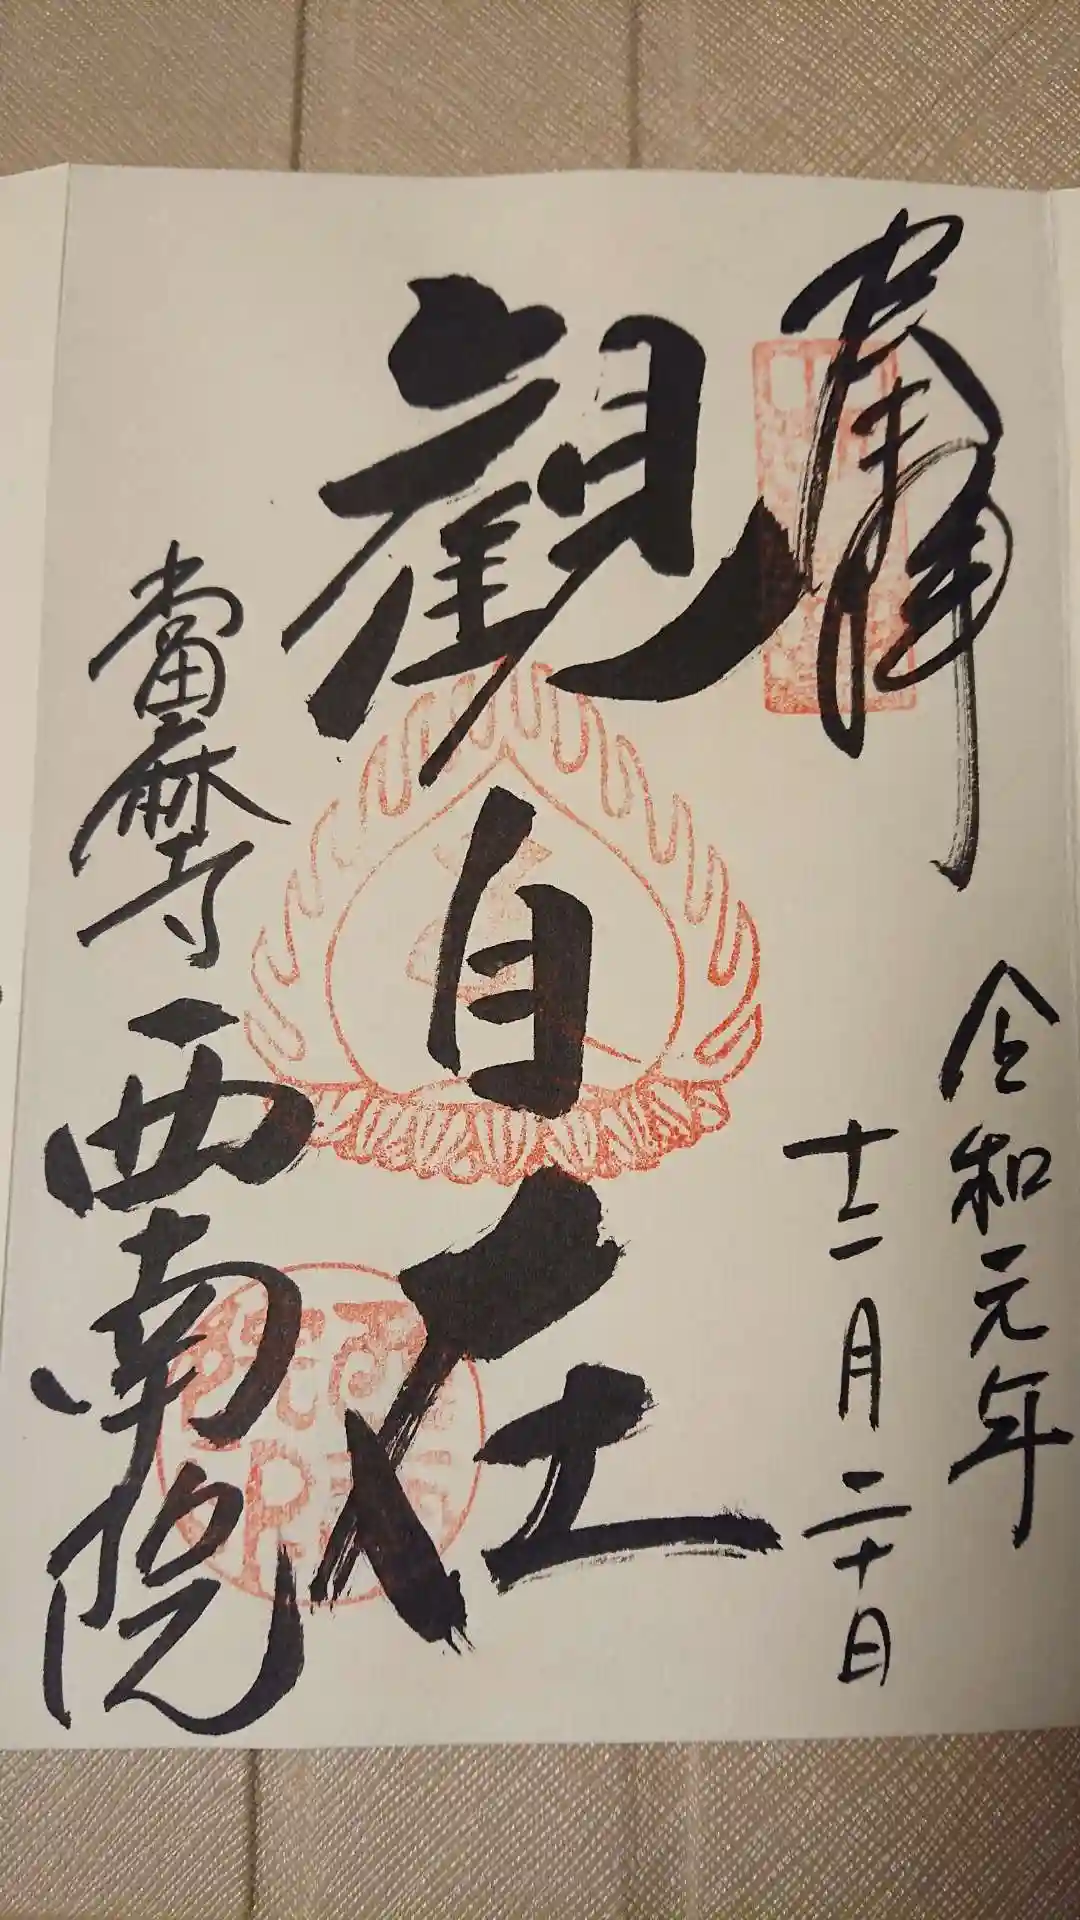 奉拝
令和元年
十二月二十日
観自在
當麻寺 西南院